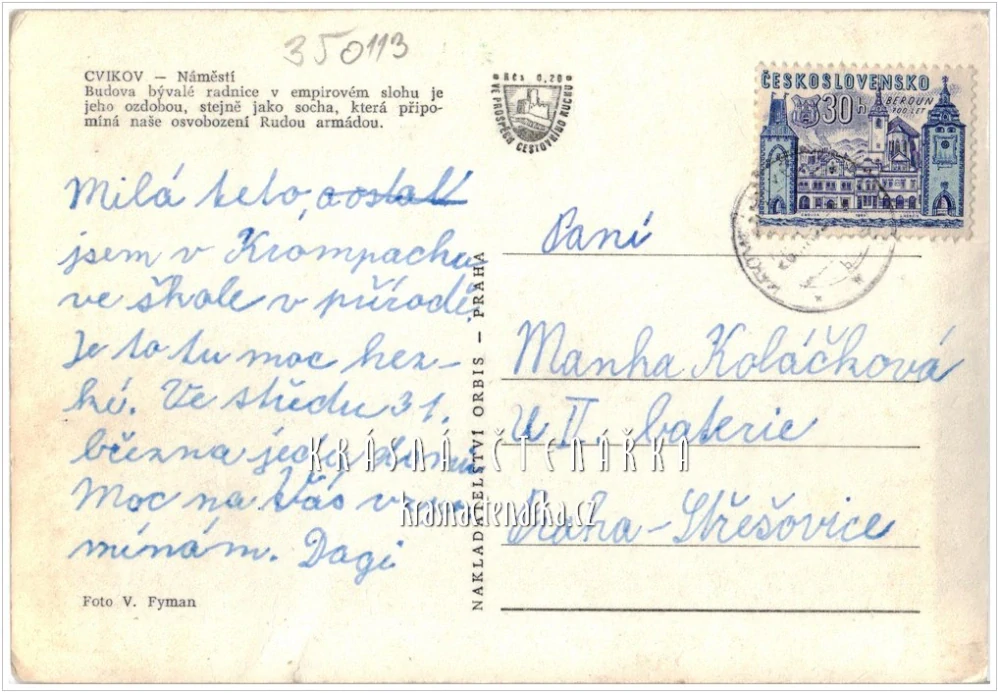 350113
CVIKOV — Náměstí
Budova bývalé radnice v empirovém slohu je
jeho ozdobou, stejně jako socha, která připo-
míná naše osvobození Rudou armádou.
Kčs 0,20
VE PROSPĚCH CESTOVNÍHO RUCHU
ČESKOSLOVENSKO
30 h
BEROUN
700 LET
Milá teto,
jsem v Krompachu
ve škole v přírodě.
Je to tu moc hez-
ké. Ve středu 31.
března jedu domů
Moc na Vás vzpo-
mínám. Dagi
Foto V. Fyman
NAKLADATELSTVÍ ORBIS — PRAHA
Paní
Manha Koláčková
U II. baterie
Praha-Střešovice
KRÁSNÁ ČTENÁŘKA
krasnactenarka.cz